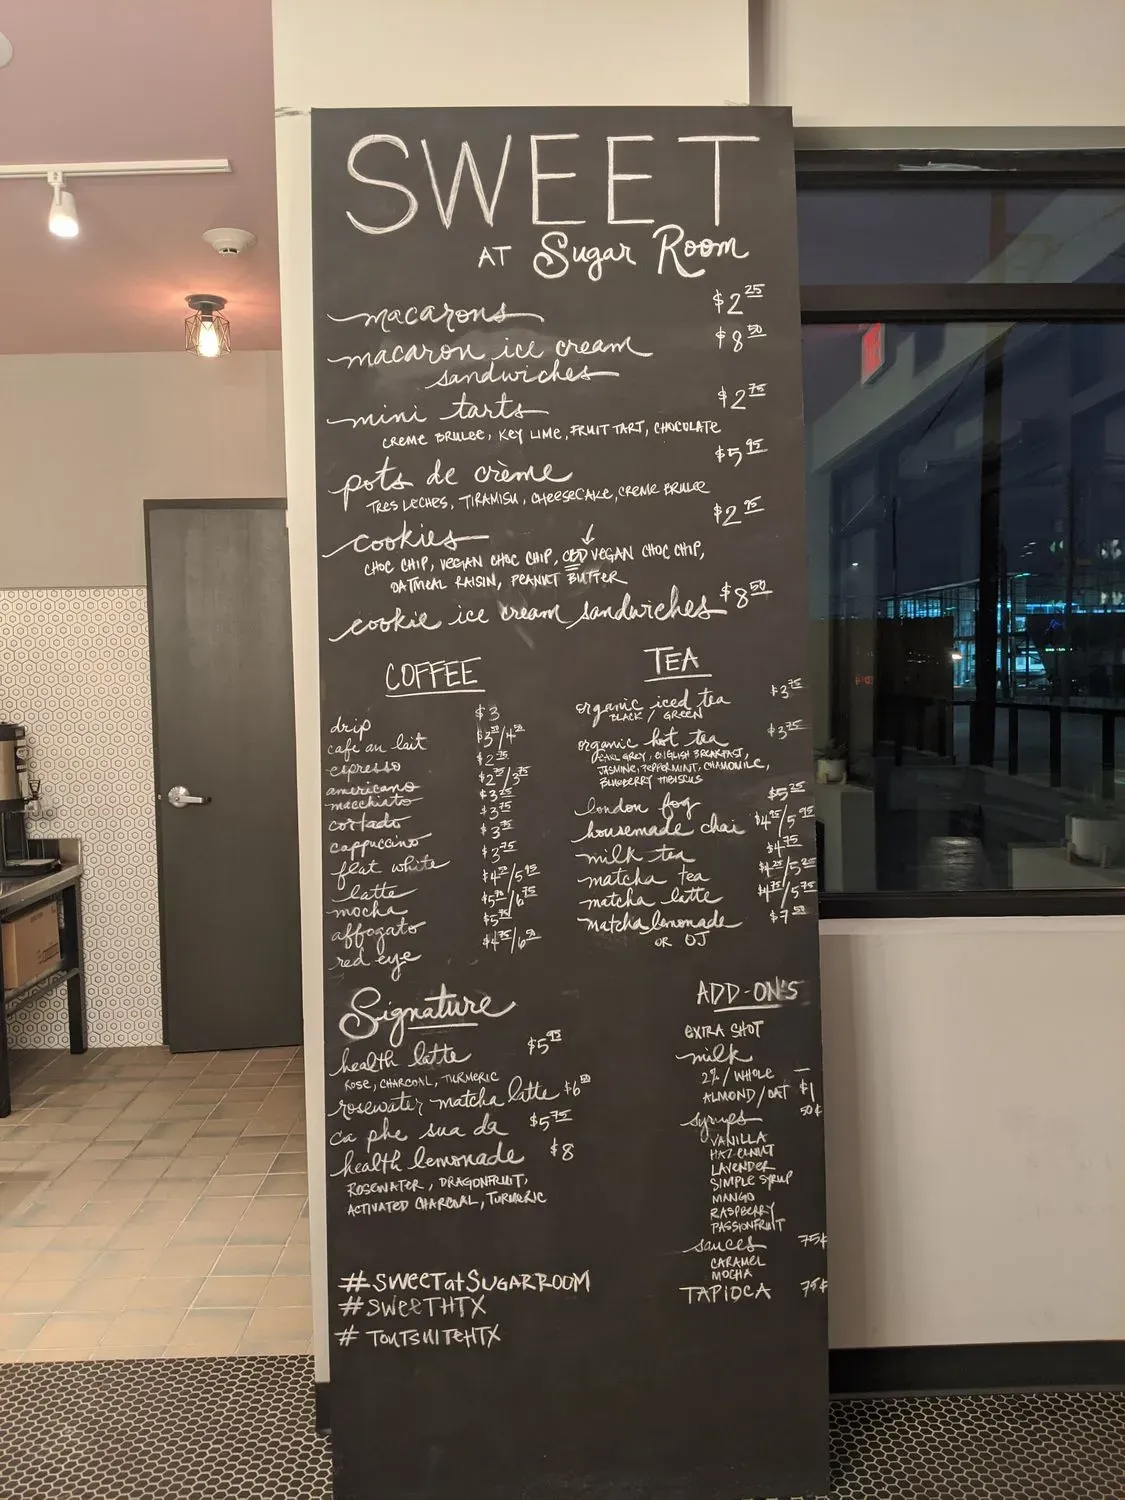 SWEET
AT Sugar Room
macarons $2.25
macaron ice cream $8.50
sandwiches
mini tarts $2.75
CREME BRULEE, KEY LIME, FRUIT TART, CHOCOLATE
pots de crème $5.95
TRES LECHES, TIRAMISU, CHEESECAKE, CREME BRULEE
cookies $2.95
CHOC CHIP, VEGAN CHOC CHIP, CBD VEGAN CHOC CHIP,
OATMEAL RAISIN, PEANUT BUTTER
cookie ice cream sandwiches $8.50
COFFEE
drip $3
cafe au lait
espresso $2.75
americano
macchiato $3.25
cortado $3.75
cappuccino
flat white $3.75
latte
mocha
affogato
red eye
TEA
organic iced tea $3.75
BLACK / GREEN
organic hot tea $3.75
EARL GREY, ENGLISH BREAKFAST,
JASMINE, PEPPERMINT, CHAMOMILE,
BLUEBERRY HIBISCUS
london fog $5.25
housemade chai
milk tea $4.75
matcha tea
matcha latte
matcha lemonade $7.50
OR OJ
Signature
health latte $5.95
ROSE, CHARCOAL, TURMERIC
rosewater matcha latte $6.50
ca phe sua da $5.75
health lemonade $8
ROSEWATER, DRAGONFRUIT,
ACTIVATED CHARCOAL, TURMERIC
ADD-ON'S
EXTRA SHOT
milk
2% / WHOLE
ALMOND/OAT $1
syrups 50¢
VANILLA
HAZELNUT
LAVENDER
SIMPLE SYRUP
MANGO
RASPBERRY
PASSIONFRUIT
sauces 75¢
CARAMEL
MOCHA
TAPIOCA 75¢
#SWEETatSUGARROOM
#SWEETHTX
#TOUTSUITEHTX